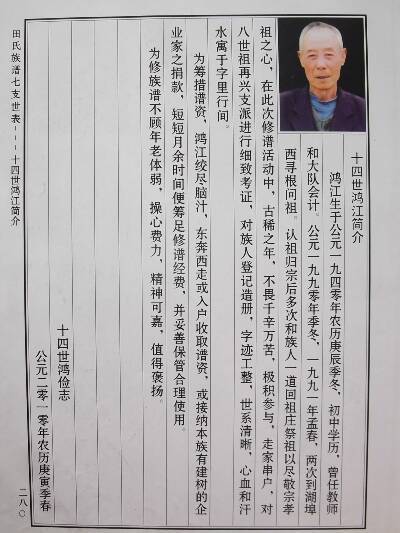 十四世鸿江简介
鸿江生于公元一九四零年农历庚辰季冬，初中学历，曾任教师
和大队会计。公元一九九零年季冬、一九九一年孟春，两次到湖埠
西寻根问祖。认祖归宗后多次和族人一道回祖庄祭祖以尽敬宗孝
祖之心，在此次修谱活动中，古稀之年，不畏千辛万苦，极积参与，走家串户，对
八世祖再兴支派进行细致考证，对族人登记造册，字迹工整，世系清晰，心血和汗
水寓于字里行间。
为筹措谱资，鸿江绞尽脑汁，东奔西走或入户收取谱资，或接纳本族有建树的企
业家之捐款，短短月余时间便筹足修谱经费，并妥善保管合理使用。
为修族谱不顾年老体弱，操心费力，精神可嘉，值得褒扬。
十四世鸿俭志
公元二零一零年农历庚寅季春
田氏族谱七支世表---十四世鸿江简介
二八○